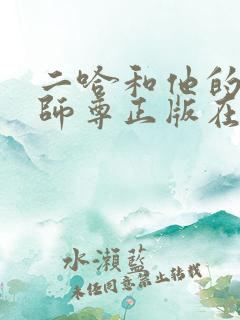 二哈和他的
師尊正版在
水瀨藍
未任同意禁止轉載